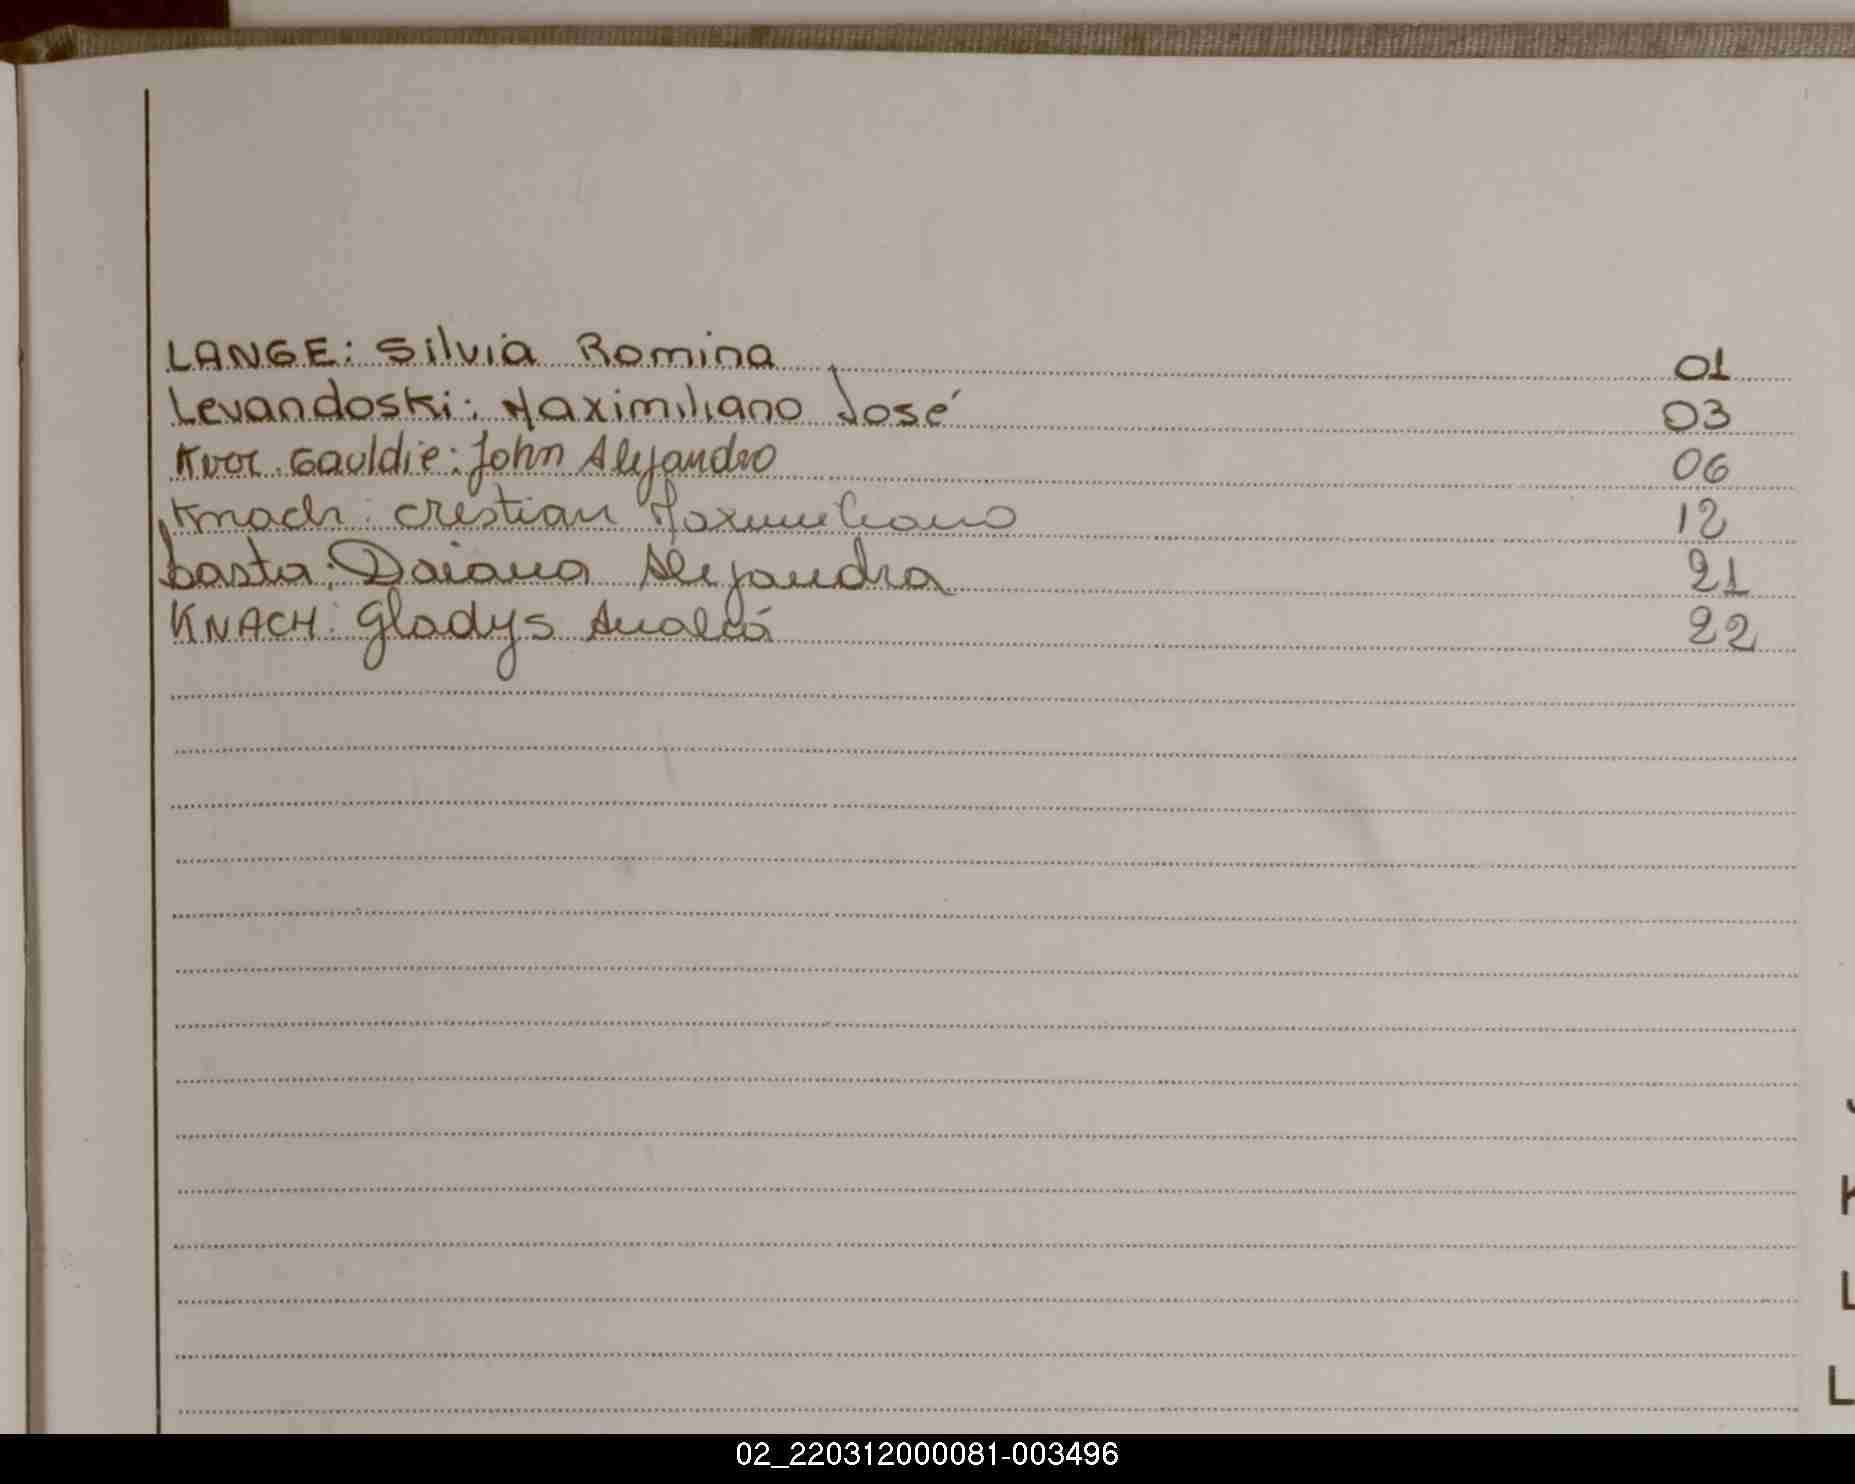 LANGE: Silvia Romina 01
Levandoski: Maximiliano José 03
Gauldie: John Alejandro 06
Knach: Cristian Maximiliano 12
Daiana Alejandra 21
KNACH: Gladys Analiá 22
K
L
L
02_220312000081-003496